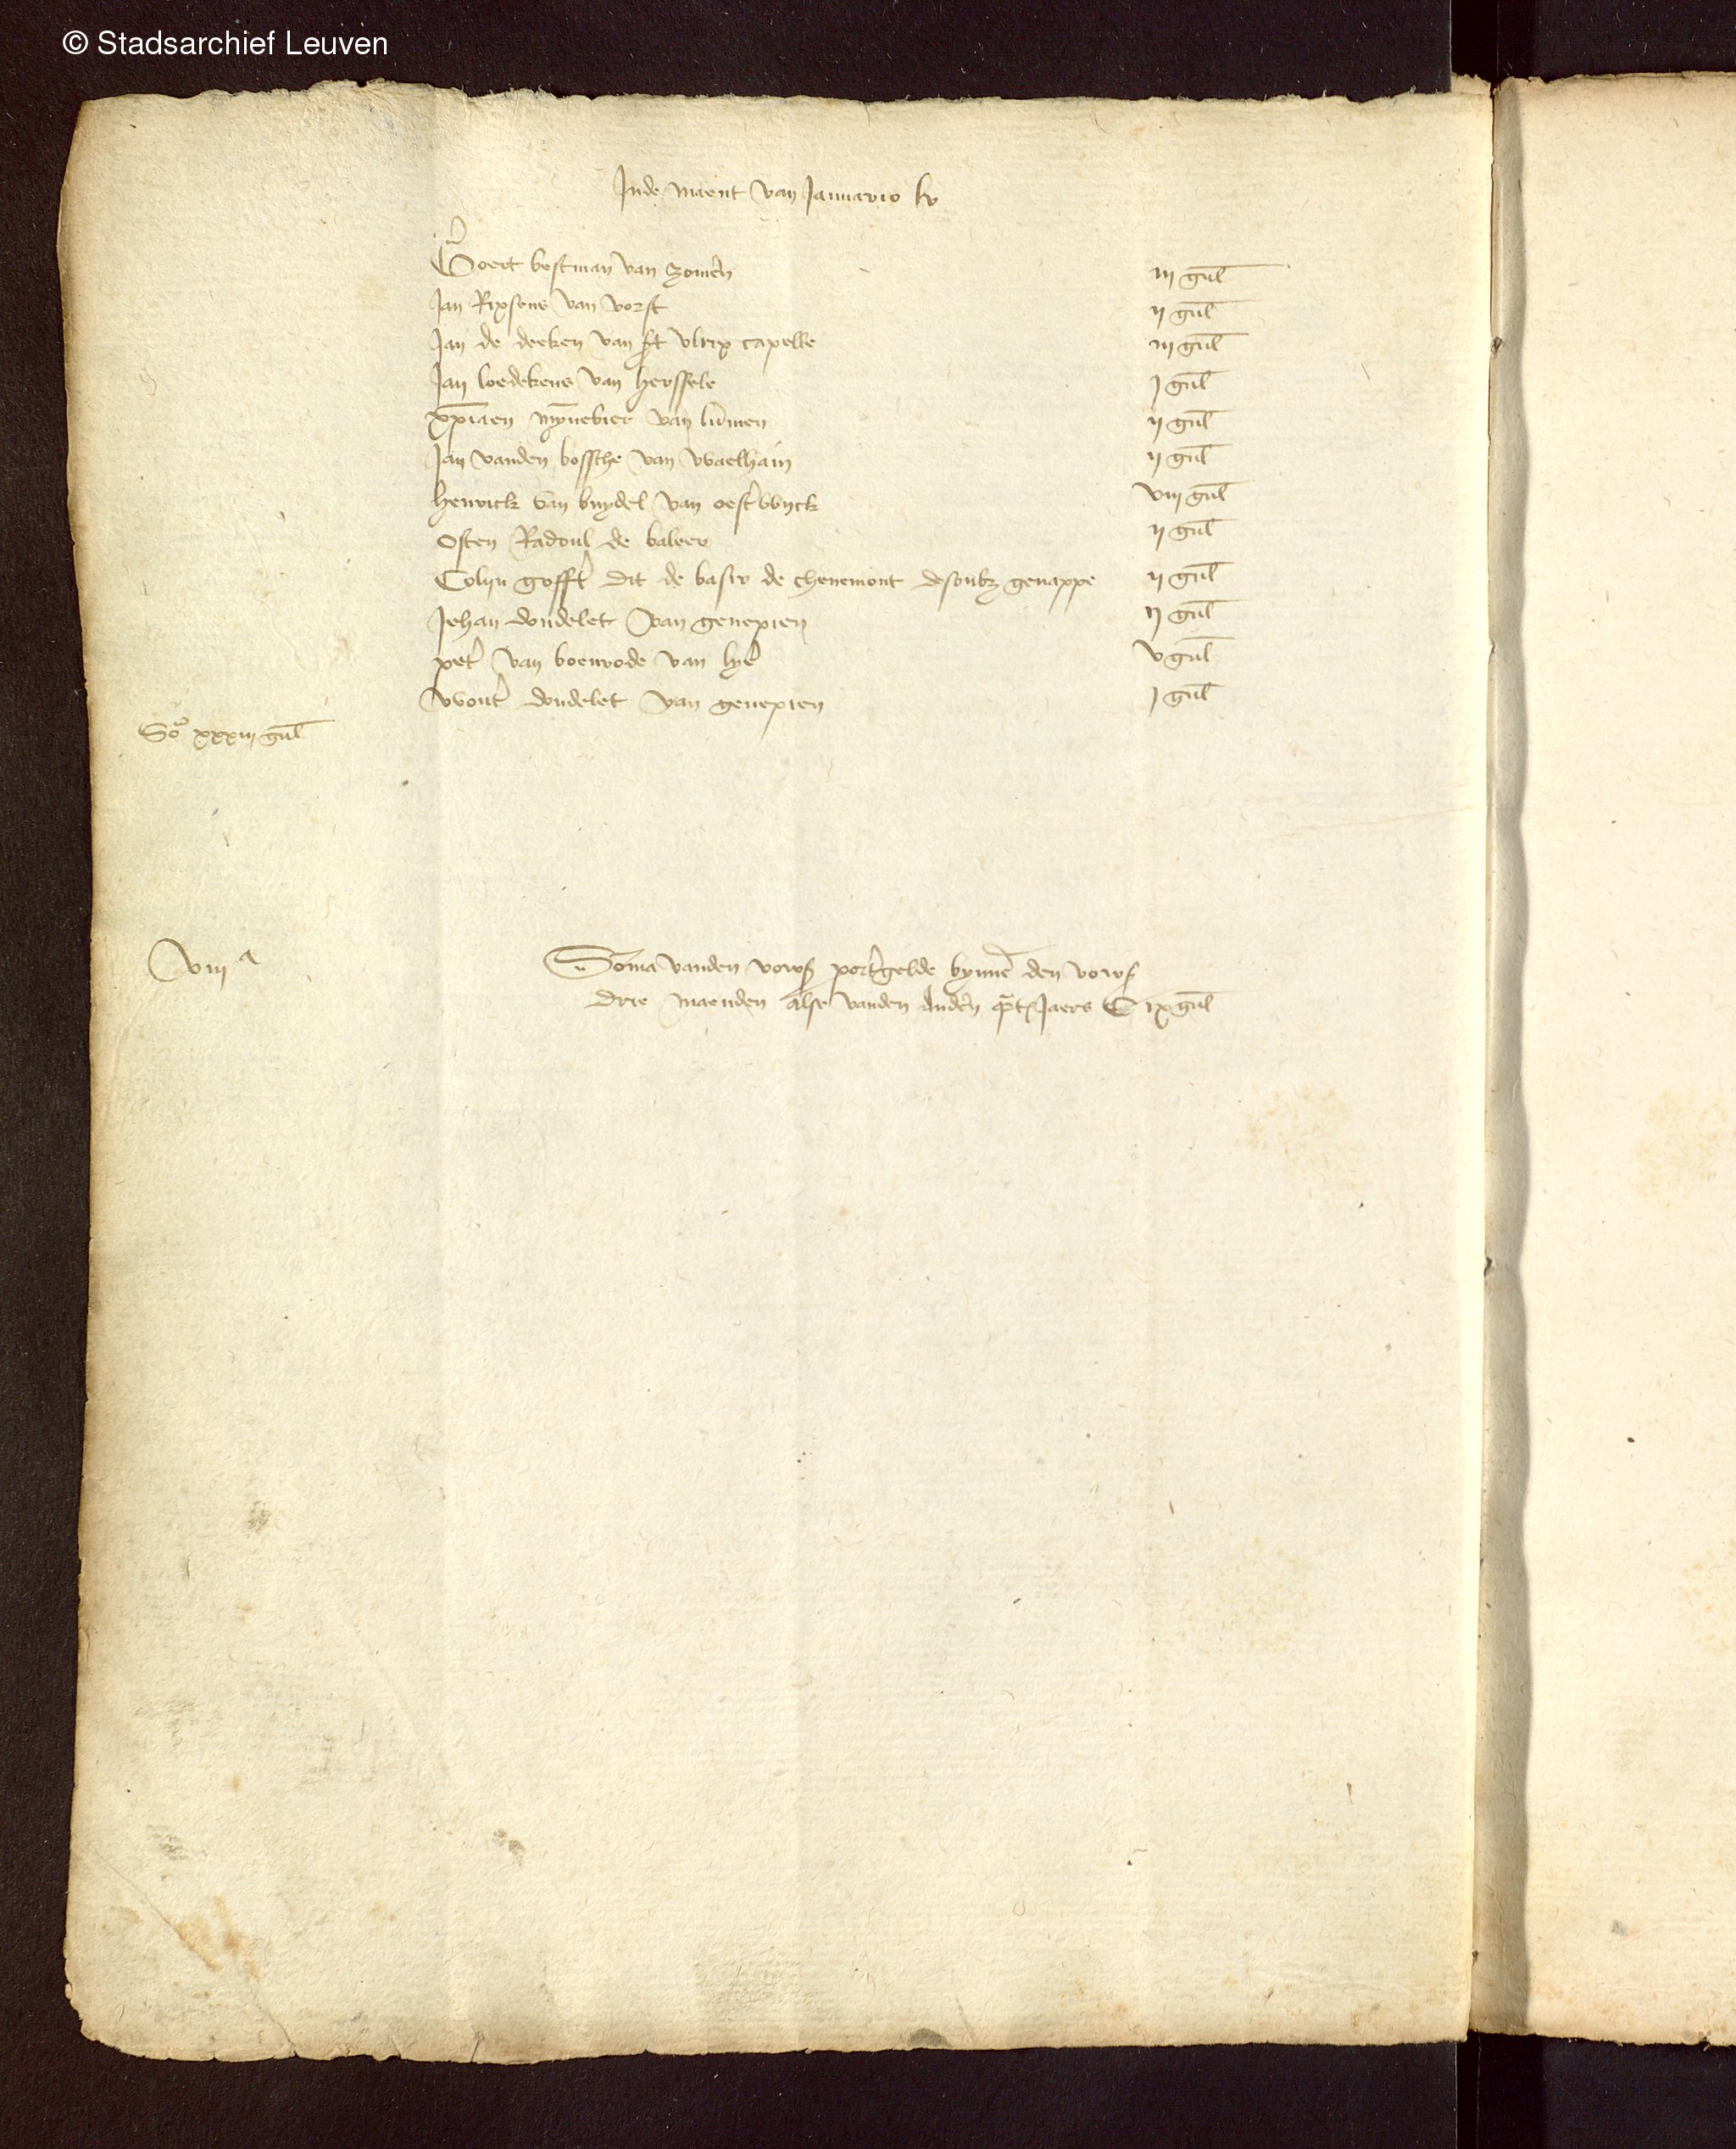 © Stadsarchief Leuven
Inde maent van Januario lv
Goert bestman van zomeren iij gul
Jan Rixsens van vorst ij gul
Jan de deeken van st vlrix capelle iij gul
Jan loedekens van herssele j gul
xpiaen mynebier van lumen ij gul
Jan vanden bossche van waelhain ij gul
henrick van buydel van oesterwyck viij gul
Osten Radoul de baleer ij gul
Colyn goffi dit de basir de chenemont desoubz genappe ij gul
Jehan dondelet van genepien ij gul
peter van boenrode van lyer v gul
wouter dondelet van genepien j gul
So xxxiij gul
viij a
Soma vanden vors portergelde bynnen den vors
drie maenden alse vanden anderen quarts Jaers C ix gul